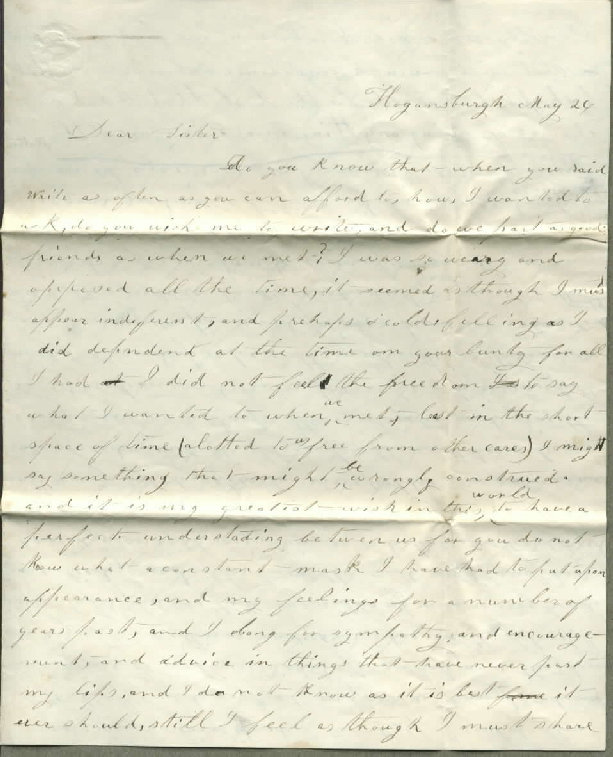 Hogansburgh May 24
Dear Sister
Do you know that when you said
write as often as you can afford to, how I wanted to
ask, do you wish me to write, and do we part as good
friends as when we met? I was so weary and
oppressed all the time, it seemed as though I must
appear indeferent, and perhaps cold feeling as I
did dependend at the time on your bunty for all
I had at I did not feel the freedom to say
what I wanted to when we met, lest in the short
space of time (alotted to us free from other cares) I might
say something that might be wrongly construed
and it is my greatest wish in this world to have a
perfect understading between us for you do not
know what a constant mask I have had to put upon
appearance, and my feelings for a number of
years past, and I long for sympathy, and encourage-
ment, and advice in things that have never past
my lips, and I do not know as it is best it
ever should, still I feel as though I must share